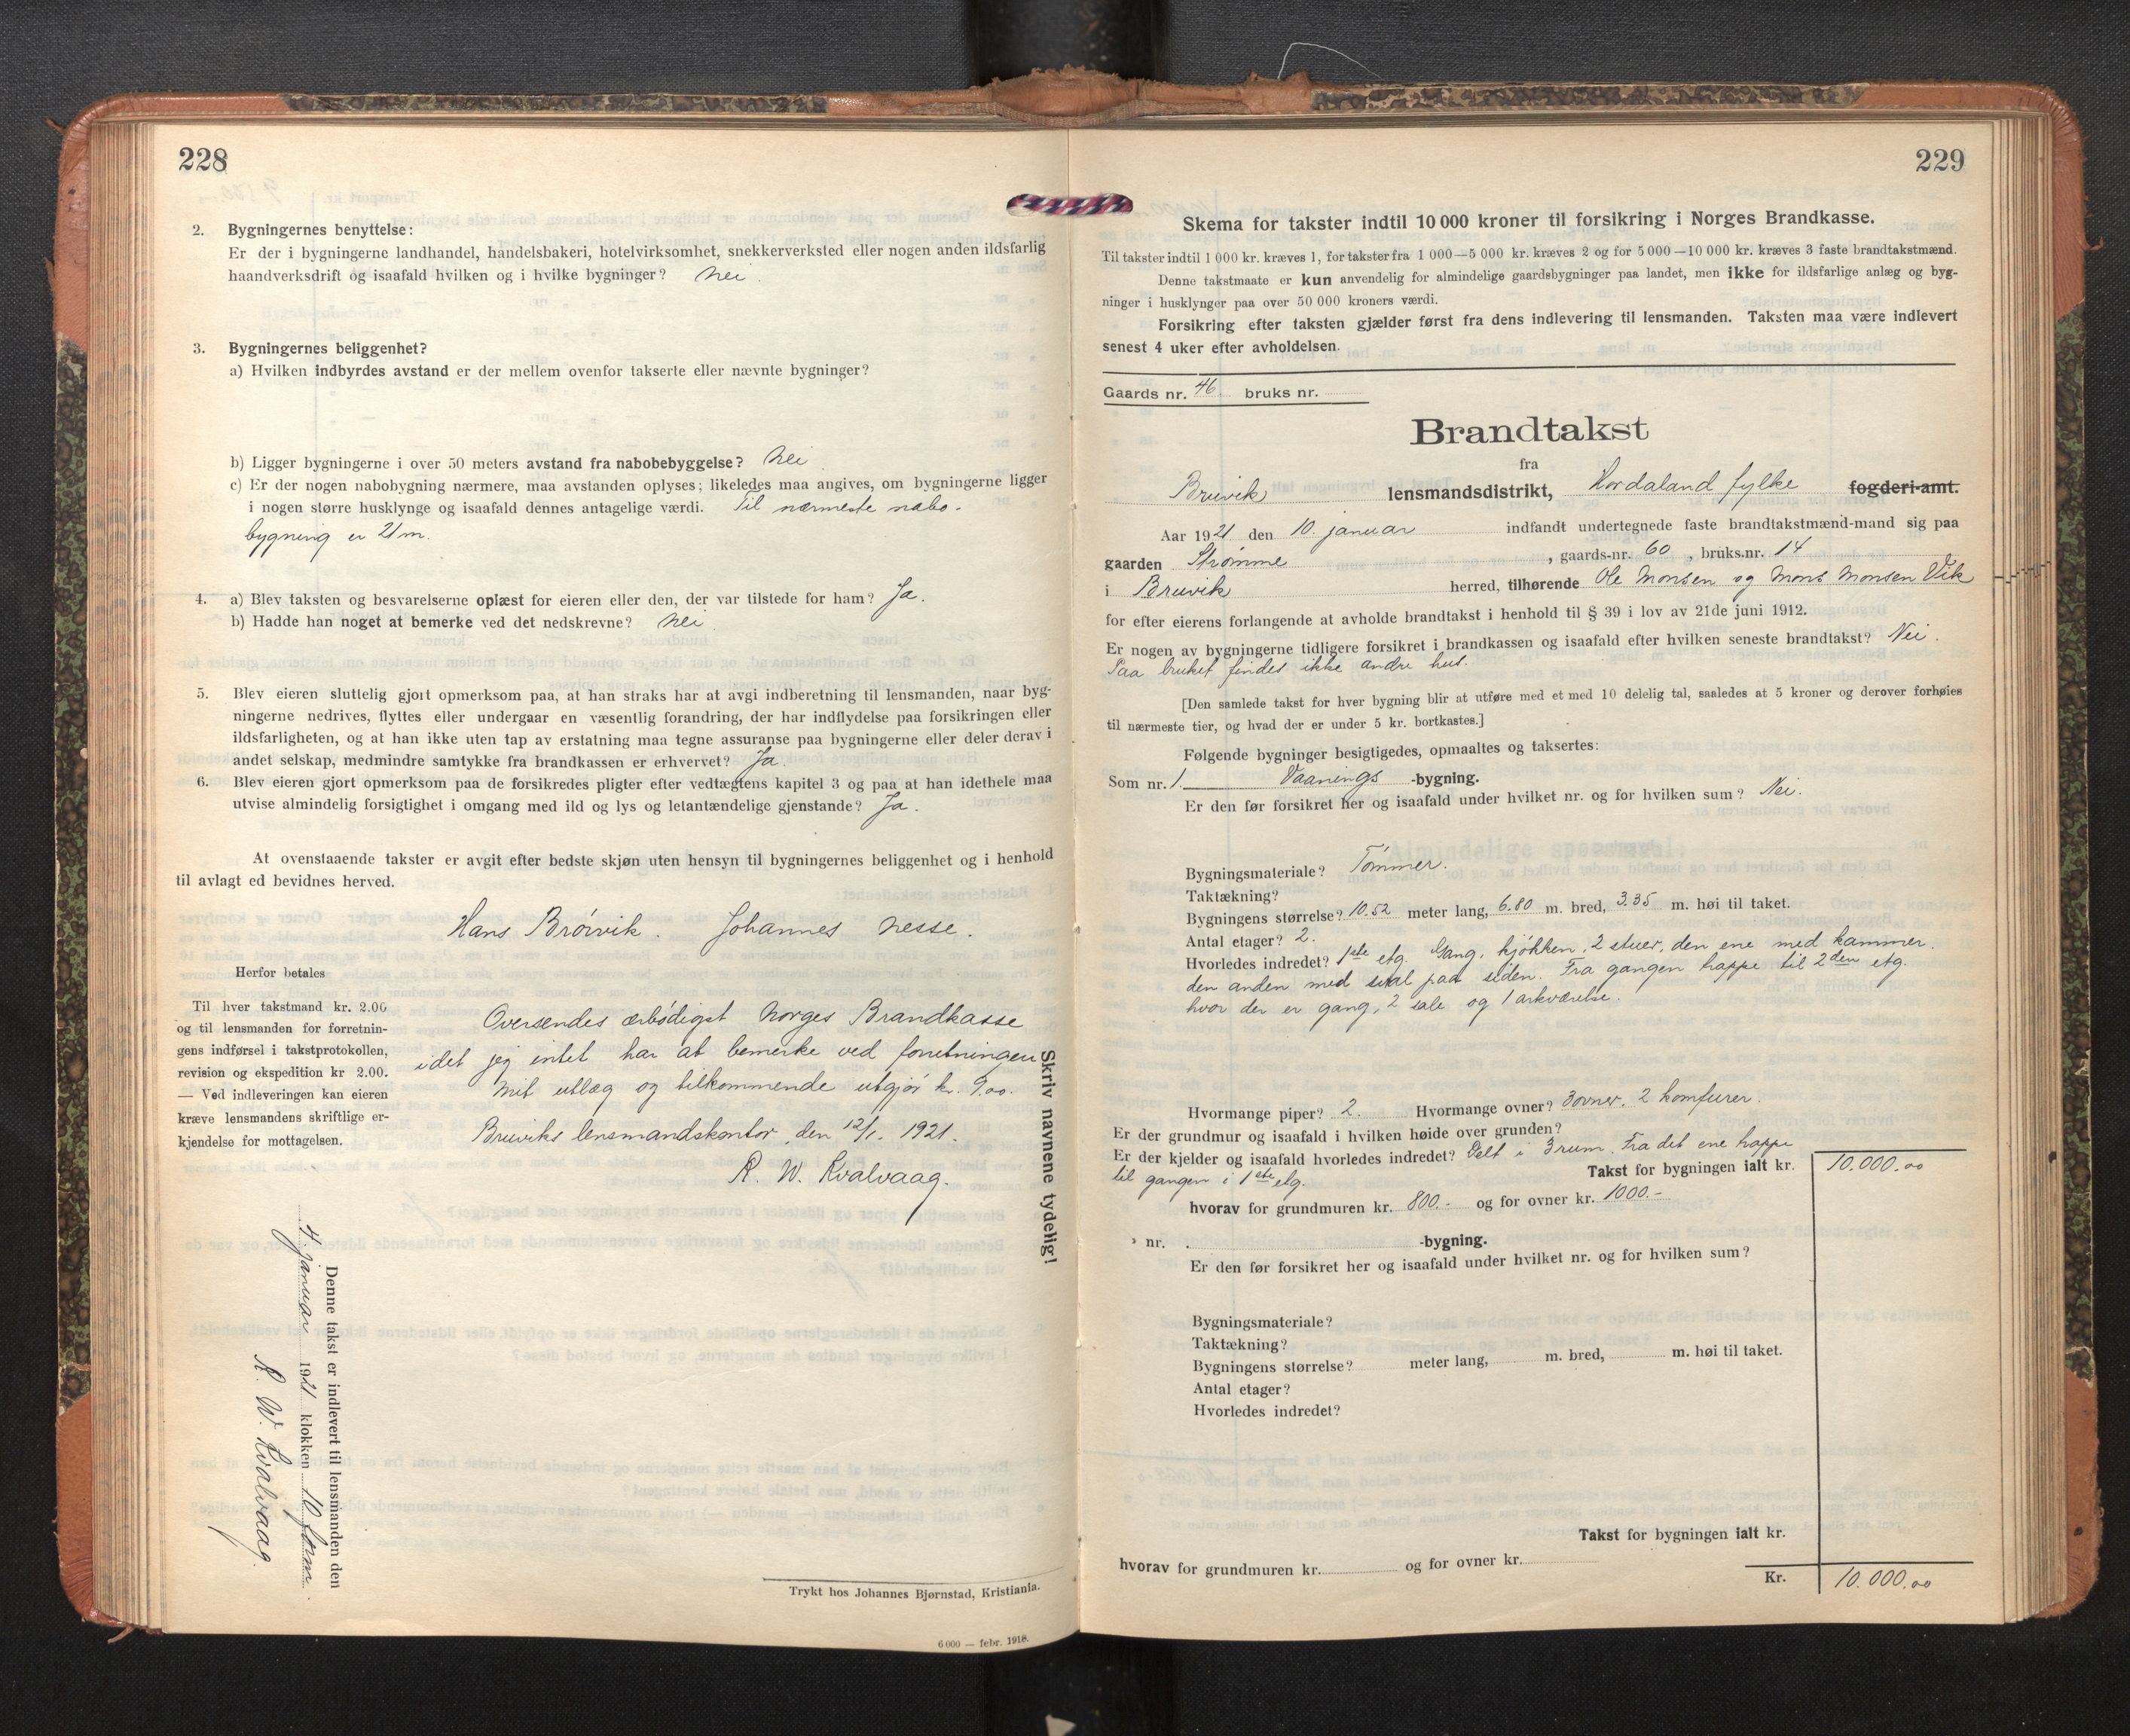 228
2. Bygningernes benyttelse:
Er der i bygningerne landhandel, handelsbakeri, hotelvirksomhet, snekkerverksted eller nogen anden ildsfarlig
haandverksdrift og isaafald hvilken og i hvilke bygninger? Nei.
3. Bygningernes beliggenhet?
a) Hvilken indbyrdes avstand er der mellem ovenfor takserte eller nævnte bygninger?
b) Ligger bygningerne i over 50 meters avstand fra nabobebyggelse? Nei.
c) Er der nogen nabobygning nærmere, maa avstanden oplyses; likeledes maa angives, om bygningerne ligger
i nogen større husklynge og isaafald dennes antagelige værdi. Til nærmeste nabo-
bygning er 21 m.
4. a) Blev taksten og besvarelserne oplæst for eieren eller den, der var tilstede for ham? Ja.
b) Hadde han noget at bemerke ved det nedskrevne? Nei.
5. Blev eieren sluttelig gjort opmerksom paa, at han straks har at avgi indberetning til lensmanden, naar byg-
ningerne nedrives, flyttes eller undergaar en væsentlig forandring, der har indflydelse paa forsikringen eller
ildsfarligheten, og at han ikke uten tap av erstatning maa tegne assuranse paa bygningerne eller deler derav i
andet selskap, medmindre samtykke fra brandkassen er erhvervet? Ja.
6. Blev eieren gjort opmerksom paa de forsikredes pligter efter vedtægtens kapitel 3 og paa at han idethele maa
utvise almindelig forsigtighet i omgang med ild og lys og letantændelige gjenstande? Ja.
At ovenstaaende takster er avgit efter bedste skjøn uten hensyn til bygningernes beliggenhet og i henhold
til avlagt ed bevidnes herved.
Hans Brøivik. Johannes Nesse.
Herfor betales
Til hver takstmand kr. 2.00
og til lensmanden for forretnin-
gens indførsel i takstprotokollen,
revision og ekspedition kr 2.00.
— Ved indleveringen kan eieren
kræve lensmandens skriftlige er-
kjendelse for mottagelsen.
Oversendes ærbødigst Norges Brandkasse
idet jeg intet har at bemerke ved forretningen
Mit utlæg og tilkommende utgjør kr. 9.00.
Bruviks lensmandskontor, den 12/1. 1921.
R. W. Kvalvaag.
Skriv navnene tydelig!
Denne takst er indlevert til lensmanden den
4 januar 1921 klokken 10 form.
R. W. Kvalvaag.
Trykt hos Johannes Bjørnstad, Kristiania.
6 000 — febr. 1918.
229
Skema for takster indtil 10 000 kroner til forsikring i Norges Brandkasse.
Til takster indtil 1 000 kr. kræves 1, for takster fra 1 000—5 000 kr. kræves 2 og for 5 000—10 000 kr. kræves 3 faste brandtakstmænd.
Denne takstmaate er kun anvendelig for almindelige gaardsbygninger paa landet, men ikke for ildsfarlige anlæg og byg-
ninger i husklynger paa over 50 000 kroners værdi.
Forsikring efter taksten gjælder først fra dens indlevering til lensmanden. Taksten maa være indlevert
senest 4 uker efter avholdelsen.
Gaards nr. 46. bruks nr.
Brandtakst
fra
Bruvik lensmandsdistrikt, Hordaland fylke fogderi-amt.
Aar 1921 den 10. januar indfandt undertegnede faste brandtakstmænd-mand sig paa
gaarden Strømme, gaards-nr. 60, bruks.nr. 14
i Bruvik herred, tilhørende Ole Monsen og Mons Monsen Vik
for efter eierens forlangende at avholde brandtakst i henhold til § 39 i lov av 21de juni 1912.
Er nogen av bygningerne tidligere forsikret i brandkassen og isaafald efter hvilken seneste brandtakst? Nei.
Paa bruket findes ikke andre hus.
[Den samlede takst for hver bygning blir at utføre med et med 10 delelig tal, saaledes at 5 kroner og derover forhøies
til nærmeste tier, og hvad der er under 5 kr. bortkastes.]
Følgende bygninger besigtigedes, opmaaltes og taksertes:
Som nr. 1. Vaanings -bygning.
Er den før forsikret her og isaafald under hvilket nr. og for hvilken sum? Nei.
Bygningsmateriale? Tømmer.
Taktækning?
Bygningens størrelse? 10.52 meter lang, 6.80 m. bred, 3.35 m. høi til taket.
Antal etager? 2.
Hvorledes indredet? 1ste etg. Gang, kjøkken, 2 stuer, den ene med kammer.
den anden med sval paa siden. Fra gangen trappe til 2den etg.
hvor der er gang, 2 sale og 1 arkværelse.
Hvormange piper? 2. Hvormange ovner? 3 ovner. 2 komfurer.
Er der grundmur og isaafald i hvilken høide over grunden?
Er der kjelder og isaafald hvorledes indredet? Delt i 3 rum. Fra det ene trappe
til gangen i 1ste etg. Takst for bygningen ialt kr. 10.000.00
hvorav for grundmuren kr. 800.- og for ovner kr. 1000.-
» nr. -bygning.
Er den før forsikret her og isaafald under hvilket nr. og for hvilken sum?
Bygningsmateriale?
Taktækning?
Bygningens størrelse? meter lang, m. bred, m. høi til taket.
Antal etager?
Hvorledes indredet?
Takst for bygningen ialt kr.
hvorav for grundmuren kr. og for ovner kr.
Kr. 10.000.00